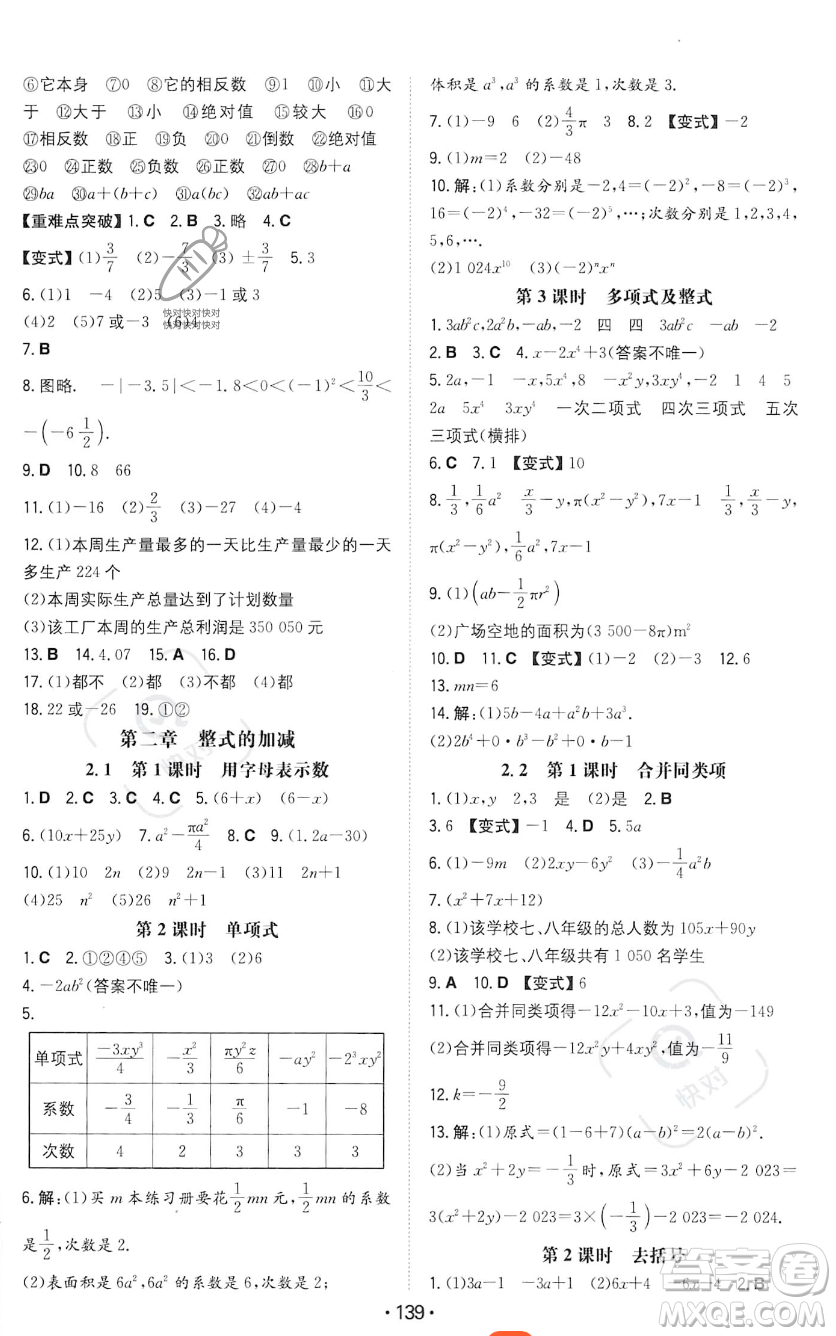 ⑥它本身 ⑦0 ⑧它的相反数 ⑨1 ⑩小 ⑪大
于 ⑫大于 ⑬小于 ⑭绝对值 ⑮较大 ⑯0
⑰相反数 ⑱正 ⑲负 ⑳0 ㉑倒数 ㉒绝对值
㉓0 ㉔正数 ㉕负数 ㉖正数 ㉗0 ㉘b+a
㉙ba ㉚a+(b+c) ㉛a(bc) ㉜ab+ac
【重难点突破】1.C 2.B 3.略 4.C
【变式】(1)3/7 (2)-7/3 (3)±3/7 5.3
6.(1)1 -4 (2)5 (3)-1 -5
(4)2 (5)7或-3 (6)4
快对快对快对
快对快对快对
7.B
8.图略. -|-3.5|<-1.8<0<(-1)²<10/3<
-(-6 1/2).
9.D 10.8 66
11.(1)-16 (2)2/3 (3)-17 (4)-27
12.(1)本周生产量最多的一天比生产量最少的一天
多生产224个
(2)本周实际生产总量达到了计划数量
(3)该工厂本周的生产总利润是350 050元
13.B 14.4.07 15.A 16.D
17.(1)都不 (2)都 (3)不都 (4)都
18.22或-26 19.①②
第二章 整式的加减
2.1 第1课时 用字母表示数
1.D 2.C 3.C 4.C 5.(6+x)
6.(10x+25y) 7.a²-πa²/4 8.C 9.(1.2a-30)
10.(1)10 2n (2)9 2n-1 (3)11 2n+1
(4)25 n² (5)26 n²+1
第2课时 单项式
1.C 2.①②④⑤ 3.(1)3 (2)6
4.-2ab²(答案不唯一)
5.
单项式 -3xy³/4 -x²/3 πy²z/6 -ay² -2³xy²
系数 -3/4 -1/3 π/6 -1 -8
次数 4 2 3 3 3
6.解:(1)买m本练习册要花1/2mn元,1/2mn的系数
是1/2,次数是2.
(2)表面积是6a²,6a²的系数是6,次数是2;
体积是a³,a³的系数是1,次数是3.
7.(1)-9 6 (2)4/3π 3 8.2 【变式】-2
9.(1)m=2 (2)-48
10.解:(1)系数分别是-2,4=(-2)²,-8=(-2)³,
16=(-2)⁴,-32=(-2)⁵,…;次数分别是1,2,3,4,
5,6,….
(2)1 024x¹⁰ (3)(-2)ⁿxⁿ
第3课时 多项式及整式
1.3ab²c,2a²b,-ab,-2 四 四 3ab²c -ab -2
2.B 3.C 4.x-2x⁴+3(答案不唯一)
5.2a,-1 5x⁴,3x,8 -x²y,3xy⁴,-2 1 4 5
2a 5x⁴ 3xy⁴ 一次二项式 四次三项式 五次
三项式(横排)
6.C 7.1 【变式】10
8.1/3,1/6a² x/3-y,π(x²-y²),7x-1 1/3,x/3-y,
π(x²-y²),1/6a²,7x-1
9.(1)(ab-1/2πr²)
(2)广场空地的面积为(3 500-8π)m²
10.D 11.C 【变式】(1)-2 (2)-3 12.6
13.mn=6
14.解:(1)5b-4a+a²+2a³.
(2)2b⁴+0·b³+5b²+0·b-1.
2.2 第1课时 合并同类项
1.(1)x,y 2,3 是 (2)是 2.B
3.6 【变式】-1 4.D 5.5a
6.(1)-9m (2)2xy-6x² (3)-1/4a²b
7.(x²+7x+12)
8.(1)该学校七、八年级的总人数为105x+90y
(2)该学校七、八年级共有1 050名学生
9.A 10.D 【变式】6
11.(1)合并同类项得-12x²-10x+3,值为-149
(2)合并同类项得-12x²y+4xy²,值为-11/9
12.k=-9/2
13.解:(1)原式=(1-6+7)(a-b)²=2(a-b)².
(2)当x²+2y=-1/3时,原式=3x²+6y-2 023=
3(x²+2y)-2 023=3×(-1/3)-2 023=-2 024.
第2课时 去括号
1.(1)3a-1 -3a+1 (2)6x+4 -6x-4 2.B
·139·
快对
快对
答案圈
MXQE.COM